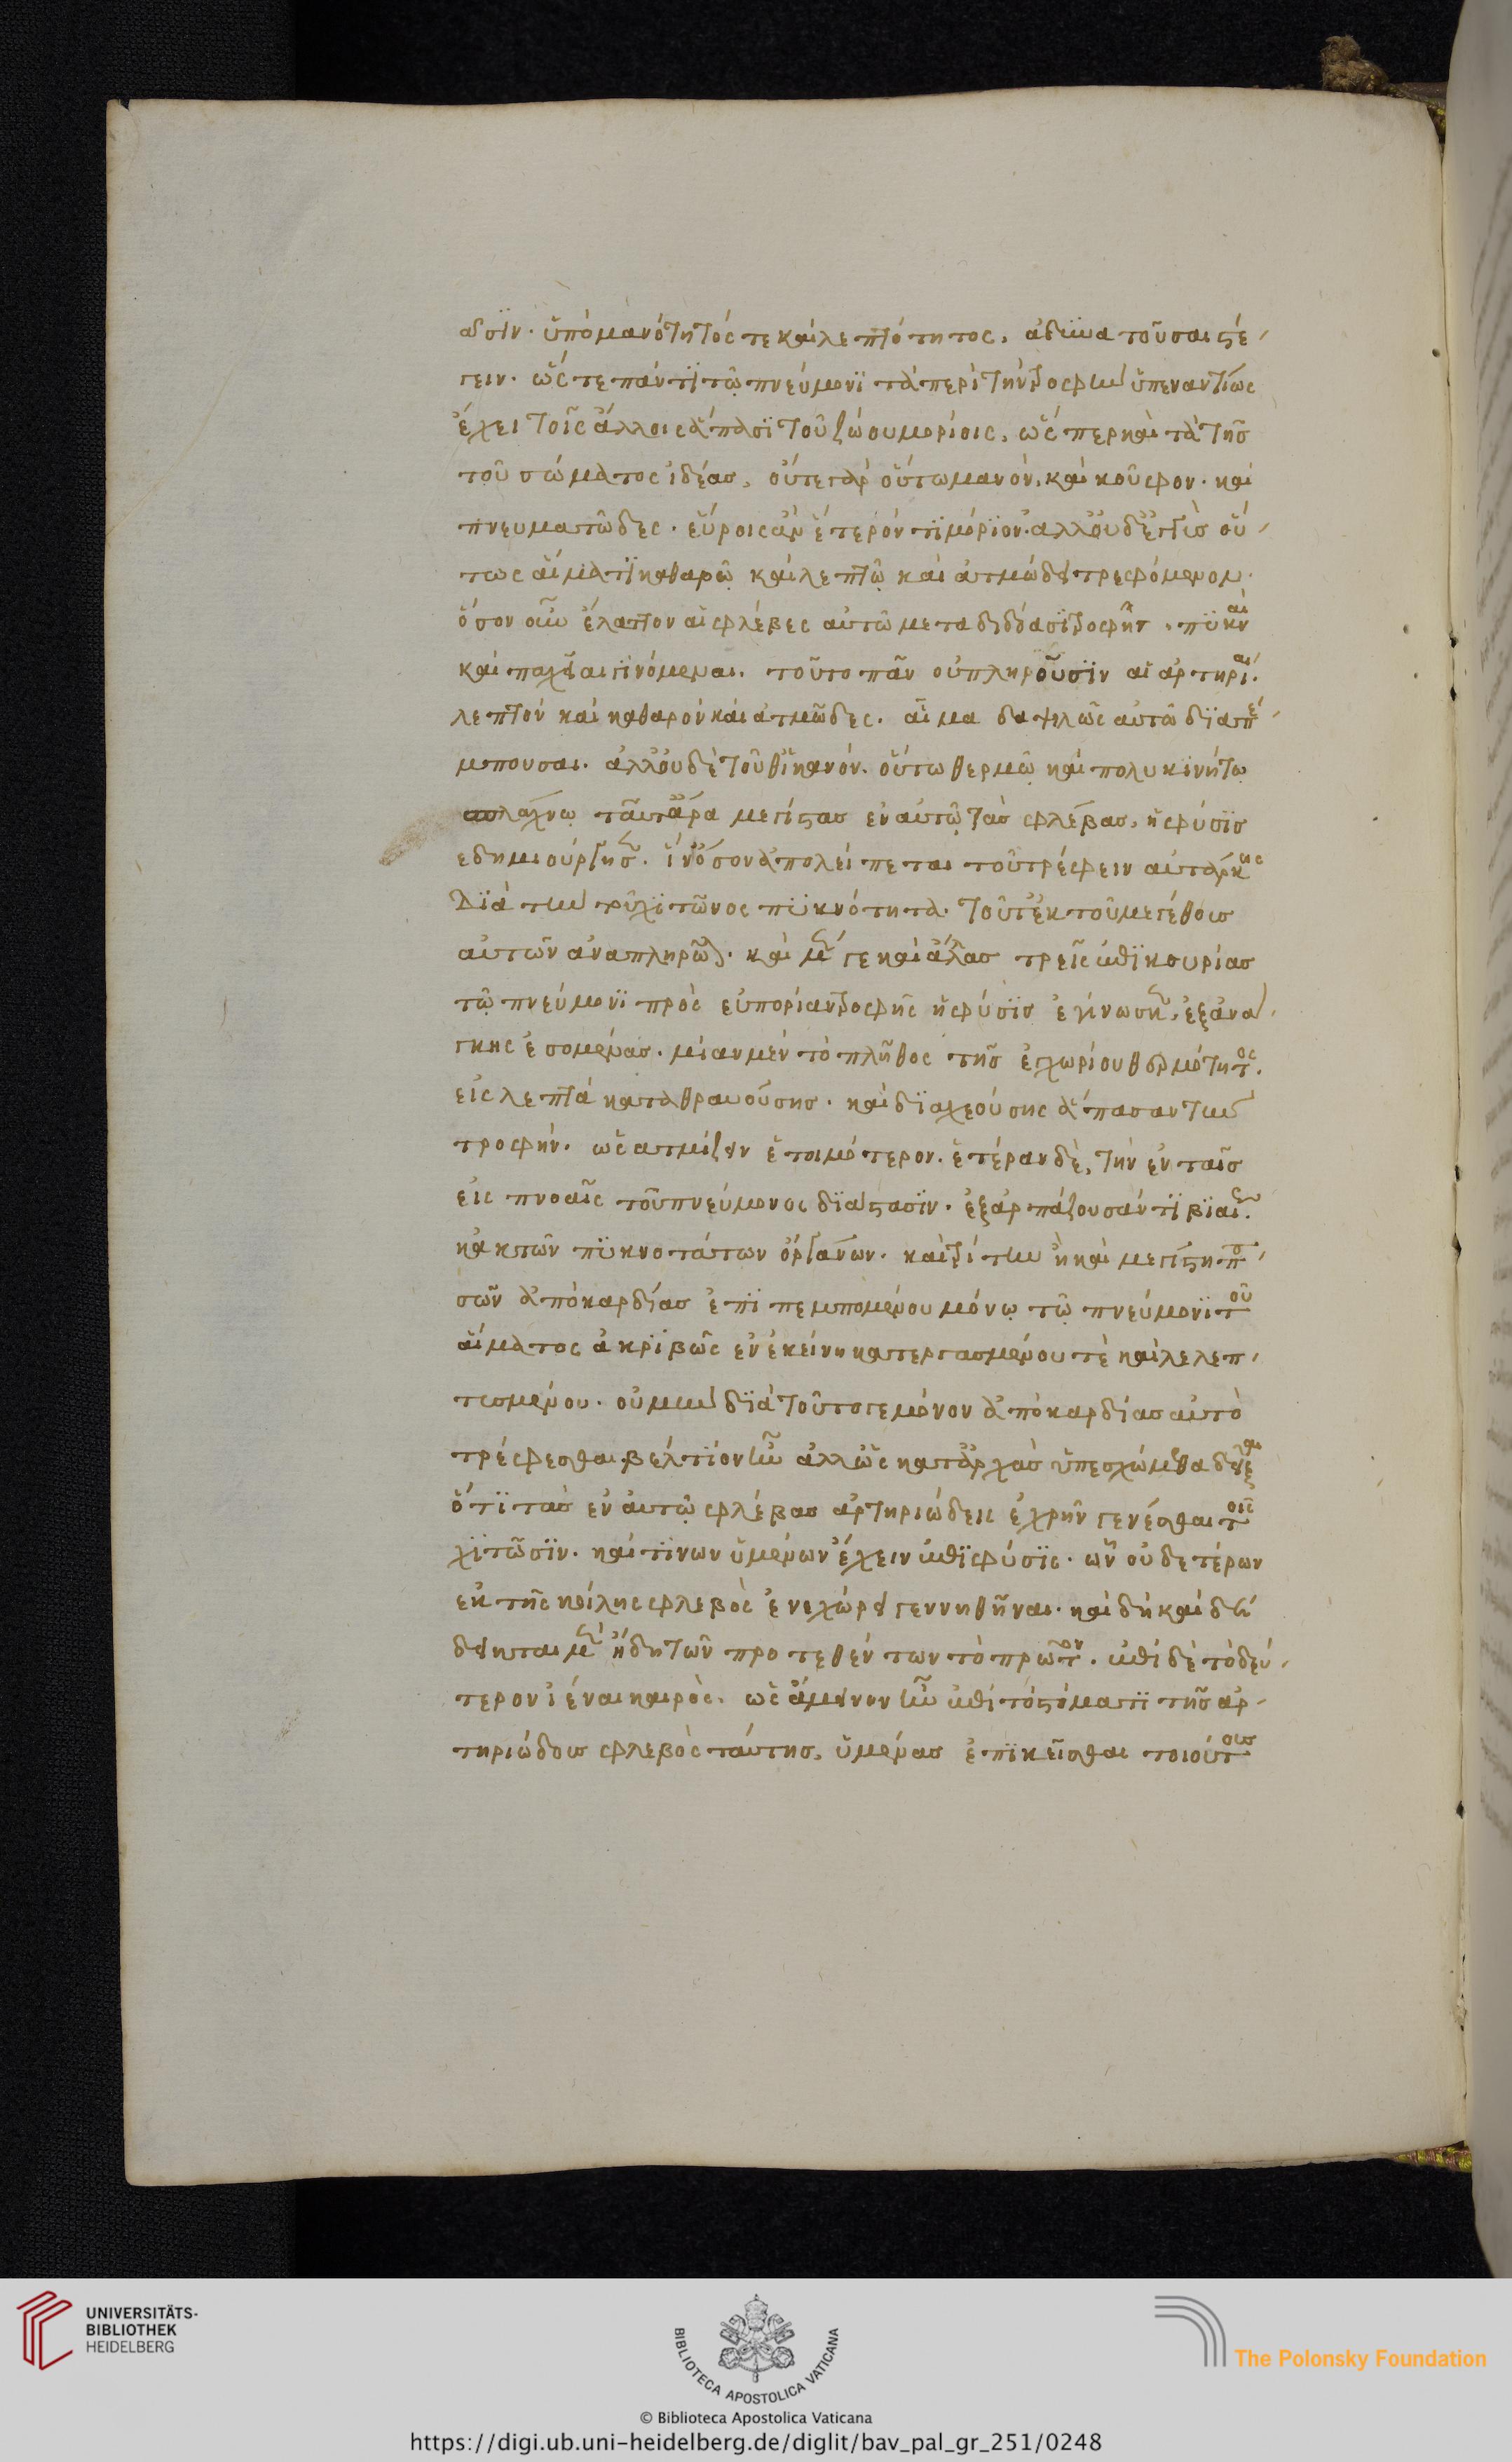 δῶσϊν· ὑπὸ μανότητός τε καὶ λεπτότητος, ἀδυνατοῦσαι στέ-
γειν· ὥς τε πάντη τῶ πνεύμονϊ τὰ περὶ τὴν τροφὴν ὑπεναντίως
ἔχει τοῖς ἄλλοις ἅπασϊ τοῦ ζώου μορίοις, ὥς περ καὶ τὰ τῆς
τοῦ σώματος ἰδέας, οὔτε γὰρ οὕτω μανὸν, καὶ κοῦφον· καὶ
πνευματῶδες· εὕροις ἂν ἕτερόν τϊ μόρϊον· αλλ' ουδέ γ' ὡς οὕ-
τως αἵματϊ καθαρῶ καὶ λεπτῶ καὶ ἀτμώδει τρεφόμενον·
ὅσον οὖν ἔλαττον αἱ φλέβες αὐτῶ μεταδιδόασϊ τροφῆς, πϋκναὶ
καὶ παχεῖαι γϊνόμεναι. τοῦτο πᾶν αὐτῶ πληροῦσϊν αἱ ἀρτηρίαι.
λεπτὸν καὶ καθαρὸν καὶ ἀτμῶδες. αἷμα δαψιλῶς αὐτῶ δϊαπέ-
μπουσαι. ἀλλ' ουδὲ τοῦθ' ἱκανόν. οὕτω θερμῶ καὶ πολυκϊνήτω
σπλάχνω ταῦτ' ἄρα μεγίστας εν αὐτῶ τὰς φλέβας, ἡ φύσϊς
εδημιούργησεν. ἵν' ὅσον ἀπολείπεται τοῦ τρέφειν αὐτάρκως
Δϊὰ τὴν τοῦ χϊτῶνος πϋκνότητα. τοῦτ' ἐκ τοῦ μεγέθους
αὐτῶν ἀναπληρῶται. καὶ μέν γε καὶ ἄλλας τρεῖς ἐπϊκουρίας
τῶ πνεύμονϊ πρὸς εὐπορίαν τροφῆς ἡ φύσϊς ἐγίνωσκεν, ἐξ ἀνά-
γκης ἐσομένας. μίαν μὲν τὸ πλῆθος τῆς ἐγχωρίου θερμότητος.
εἰς λεπτὰ καταθραυούσης. καὶ δϊαχεούσης ἅπασαν τὴν
τροφήν. ὡς ατμίζειν ἑτοιμότερον. ἑτέραν δὲ, τὴν ἐν ταῖς
εἰς πνοαῖς τοῦ πνεύμονος δϊάστασϊν. ἐξαρπάζουσάν τϊ βϊαίως.
κἀκ τῶν πϋκνοτάτων ὀργάνων. καὶ τρίτην ἣ καὶ μεγίστη πα-
σῶν ἀπὸ καρδίας ἐπϊπεμπομένου μόνω τῶ πνεύμονϊ τοῦ
αἵματος ἀκρϊβῶς εν ἐκείνη κατεργασμένου τὲ καὶ λελεπ-
τυσμένου. οὐ μὴν δϊὰ τοῦτό γε μόνον ἀπὸ καρδίας αὐτὸ
τρέφεσθαι βέλτϊον ἦν ἀλλ' ὡς κατ' ἀρχὰς ὑπεσχόμεθα δεῖξαι
ὅτϊ τὰς εν ἀυτῶ φλέβας ἀρτηριώδεις ἐχρῆν γενέσθαι τοῖς
χϊτῶσϊν. καί τϊνων ὑμένων ἔχειν ἐπϊφύσϊς. ὧν οὐδετέρων
εκ τῆς κοίλης φλεβὸς ἐνεχώρει γεννηθῆναι. καὶ δὴ καὶ δέ-
δεικται μὲν ἤδη τῶν προτεθέντων τὸ πρῶτον. ἐπὶ δὲ τὸ δεύ-
τερον ἰέναι καιρὸς. ὡς ἄμεινον ἦν ἐπὶ τὸ στόματϊ τῆς ἀρ-
τηριώδους φλεβὸς ταύτης, ὑμένας ἐπϊκεῖσθαι τοιούτους
UNIVERSITÄTS-
BIBLIOTHEK
HEIDELBERG
BIBLIOTECA APOSTOLICA VATICANA
The Polonsky Foundation
© Biblioteca Apostolica Vaticana
https://digi.ub.uni-heidelberg.de/diglit/bav_pal_gr_251/0248